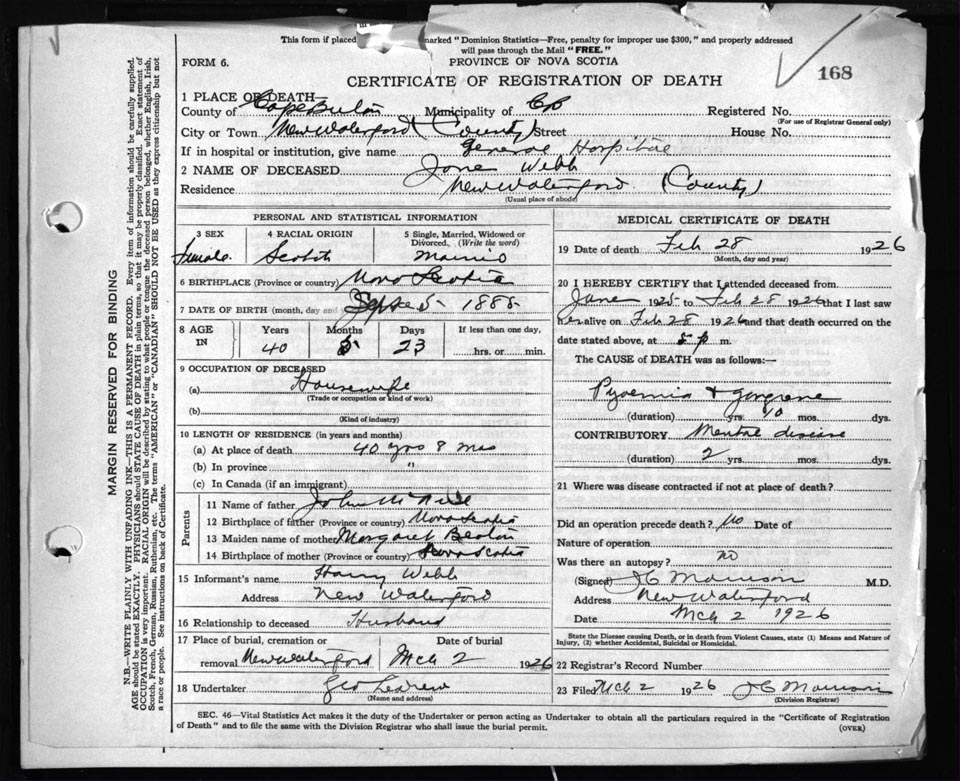 This form if placed marked "Dominion Statistics—Free, penalty for improper use $300," and properly addressed
will pass through the Mail "FREE."
FORM 6.
PROVINCE OF NOVA SCOTIA
CERTIFICATE OF REGISTRATION OF DEATH
168
1 PLACE OF DEATH—
County of Cape Breton Municipality of C B Registered No.
(For use of Registrar General only)
City or Town New Waterford (County) Street House No.
If in hospital or institution, give name General Hospital
2 NAME OF DECEASED Jane Webb
Residence New Waterford (County)
(Usual place of abode)
PERSONAL AND STATISTICAL INFORMATION
3 SEX 4 RACIAL ORIGIN 5 Single, Married, Widowed or Divorced. (Write the word)
Female Scotch Married
6 BIRTHPLACE (Province or country) Nova Scotia
7 DATE OF BIRTH (month, day and Sept 5 1885
8 AGE IN Years Months Days If less than one day,
40 5 23 hrs. or min.
9 OCCUPATION OF DECEASED
(a) Housewife
(Trade or occupation or kind of work)
(b)
(Kind of industry)
10 LENGTH OF RESIDENCE (in years and months)
(a) At place of death 40 yrs 8 mos
(b) In province "
(c) In Canada (if an immigrant)
Parents
11 Name of father John McNeil
12 Birthplace of father (Province or country) Nova Scotia
13 Maiden name of mother Margaret Beaton
14 Birthplace of mother (Province or country) Nova Scotia
15 Informant's name Harry Webb
Address New Waterford
16 Relationship to deceased Husband
17 Place of burial, cremation or removal New Waterford Date of burial Mch 2 1926
18 Undertaker Geo
(Name and address)
MEDICAL CERTIFICATE OF DEATH
19 Date of death Feb 28 1926
(Month, day and year)
20 I HEREBY CERTIFY that I attended deceased from
June 1925 to Feb 28 1926 that I last saw
her alive on Feb 28 1926 and that death occurred on the
date stated above, at 5 p m.
The CAUSE of DEATH was as follows:—
Pyaemia + gangrene
(duration) yrs. 10 mos. dys.
CONTRIBUTORY Mental disease
(duration) 2 yrs. mos. dys.
21 Where was disease contracted if not at place of death?
Did an operation precede death? No Date of
Nature of operation
Was there an autopsy? no
(Signed) J C Morrison M.D.
Address New Waterford
Date Mch 2 1926
State the Disease causing Death, or in death from Violent Causes, state (1) Means and Nature of
Injury, (2) whether Accidental, Suicidal or Homicidal.
22 Registrar's Record Number
23 Filed Mch 2 1926 J C Morrison
(Division Registrar)
SEC. 46—Vital Statistics Act makes it the duty of the Undertaker or person acting as Undertaker to obtain all the particulars required in the "Certificate of Registration
of Death" and to file the same with the Division Registrar who shall issue the burial permit. (OVER)
MARGIN RESERVED FOR BINDING
N.B.—WRITE PLAINLY WITH UNFADING INK—THIS IS A PERMANENT RECORD. Every item of information should be carefully supplied.
AGE should be stated EXACTLY. PHYSICIANS should STATE CAUSE OF DEATH in plain terms, so that it may be properly classified. Exact statement of
OCCUPATION is very important. RACIAL ORIGIN will be described by stating to what people or tongue the deceased person belonged, whether English, Irish,
Scotch, French, German, Russian, Ruthenian, etc. The terms "AMERICAN" or "CANADIAN" SHOULD NOT BE USED as they express citizenship but not
a race or people. See instructions on back of Certificate.